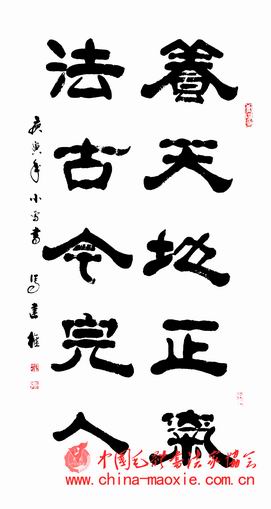 養天地正氣
法古今完人
庚寅年小雪書
中国毛体书法家协会
www.china-maoxie.com.cn